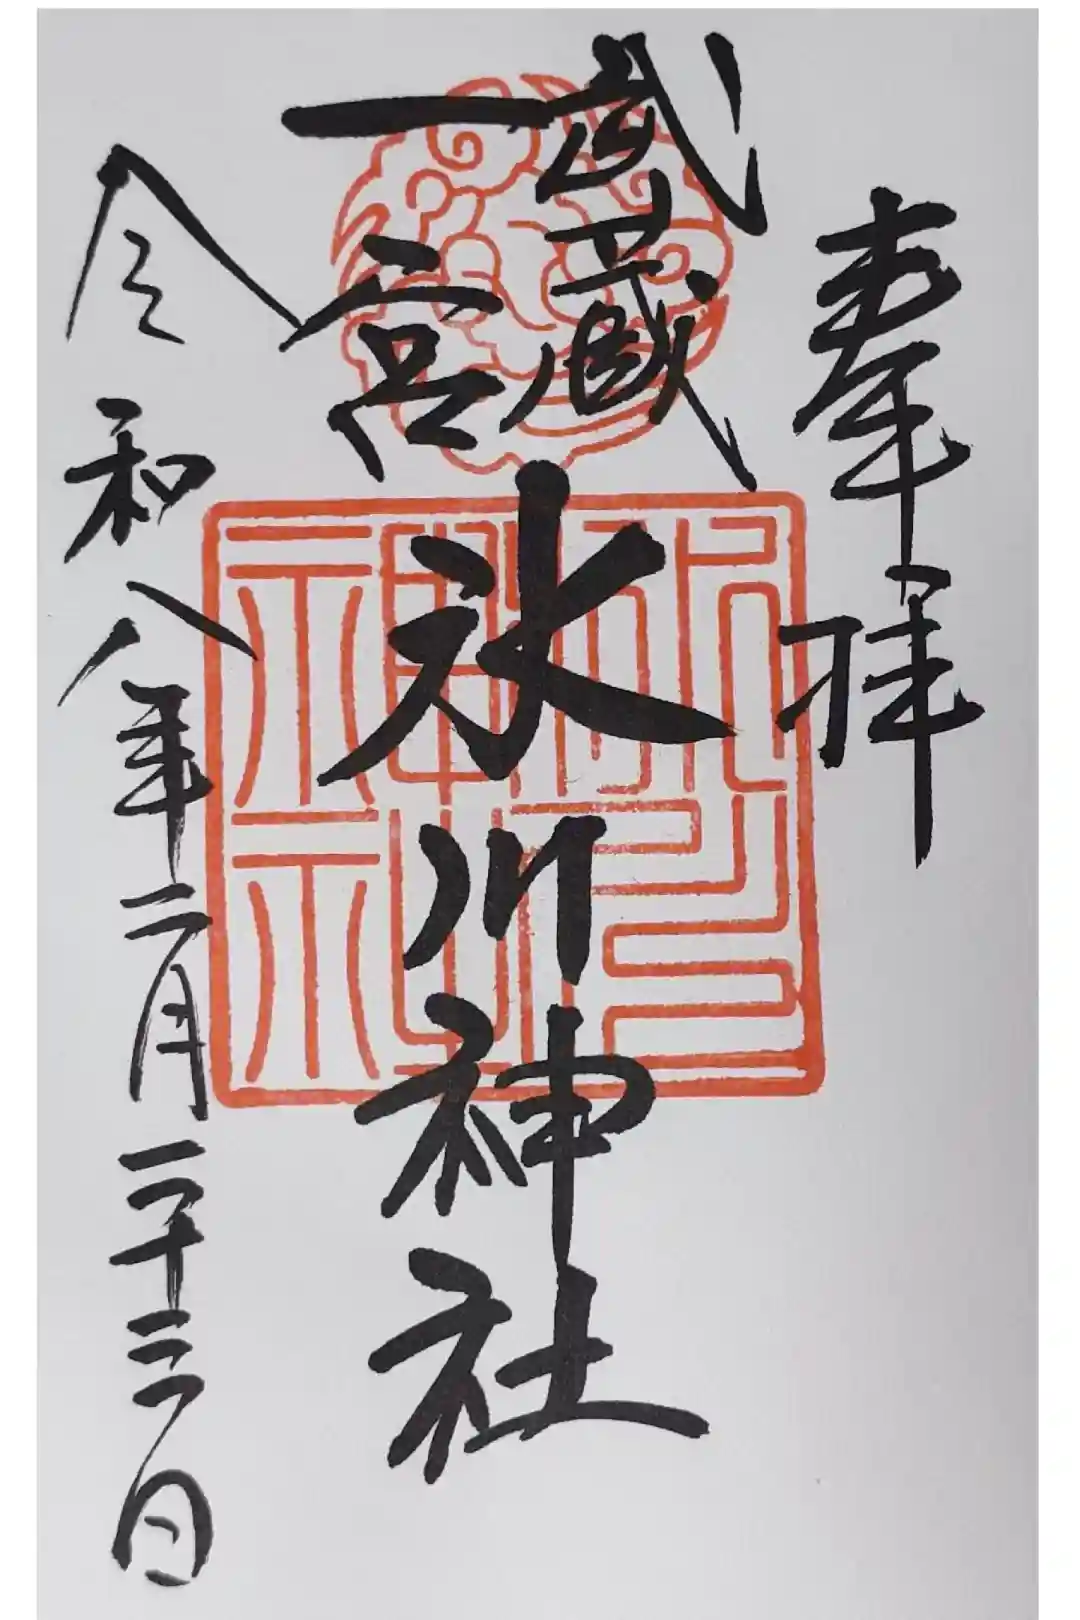 奉拝
武蔵
一宮
氷川神社
令和八年二月二十三日
氷川神社